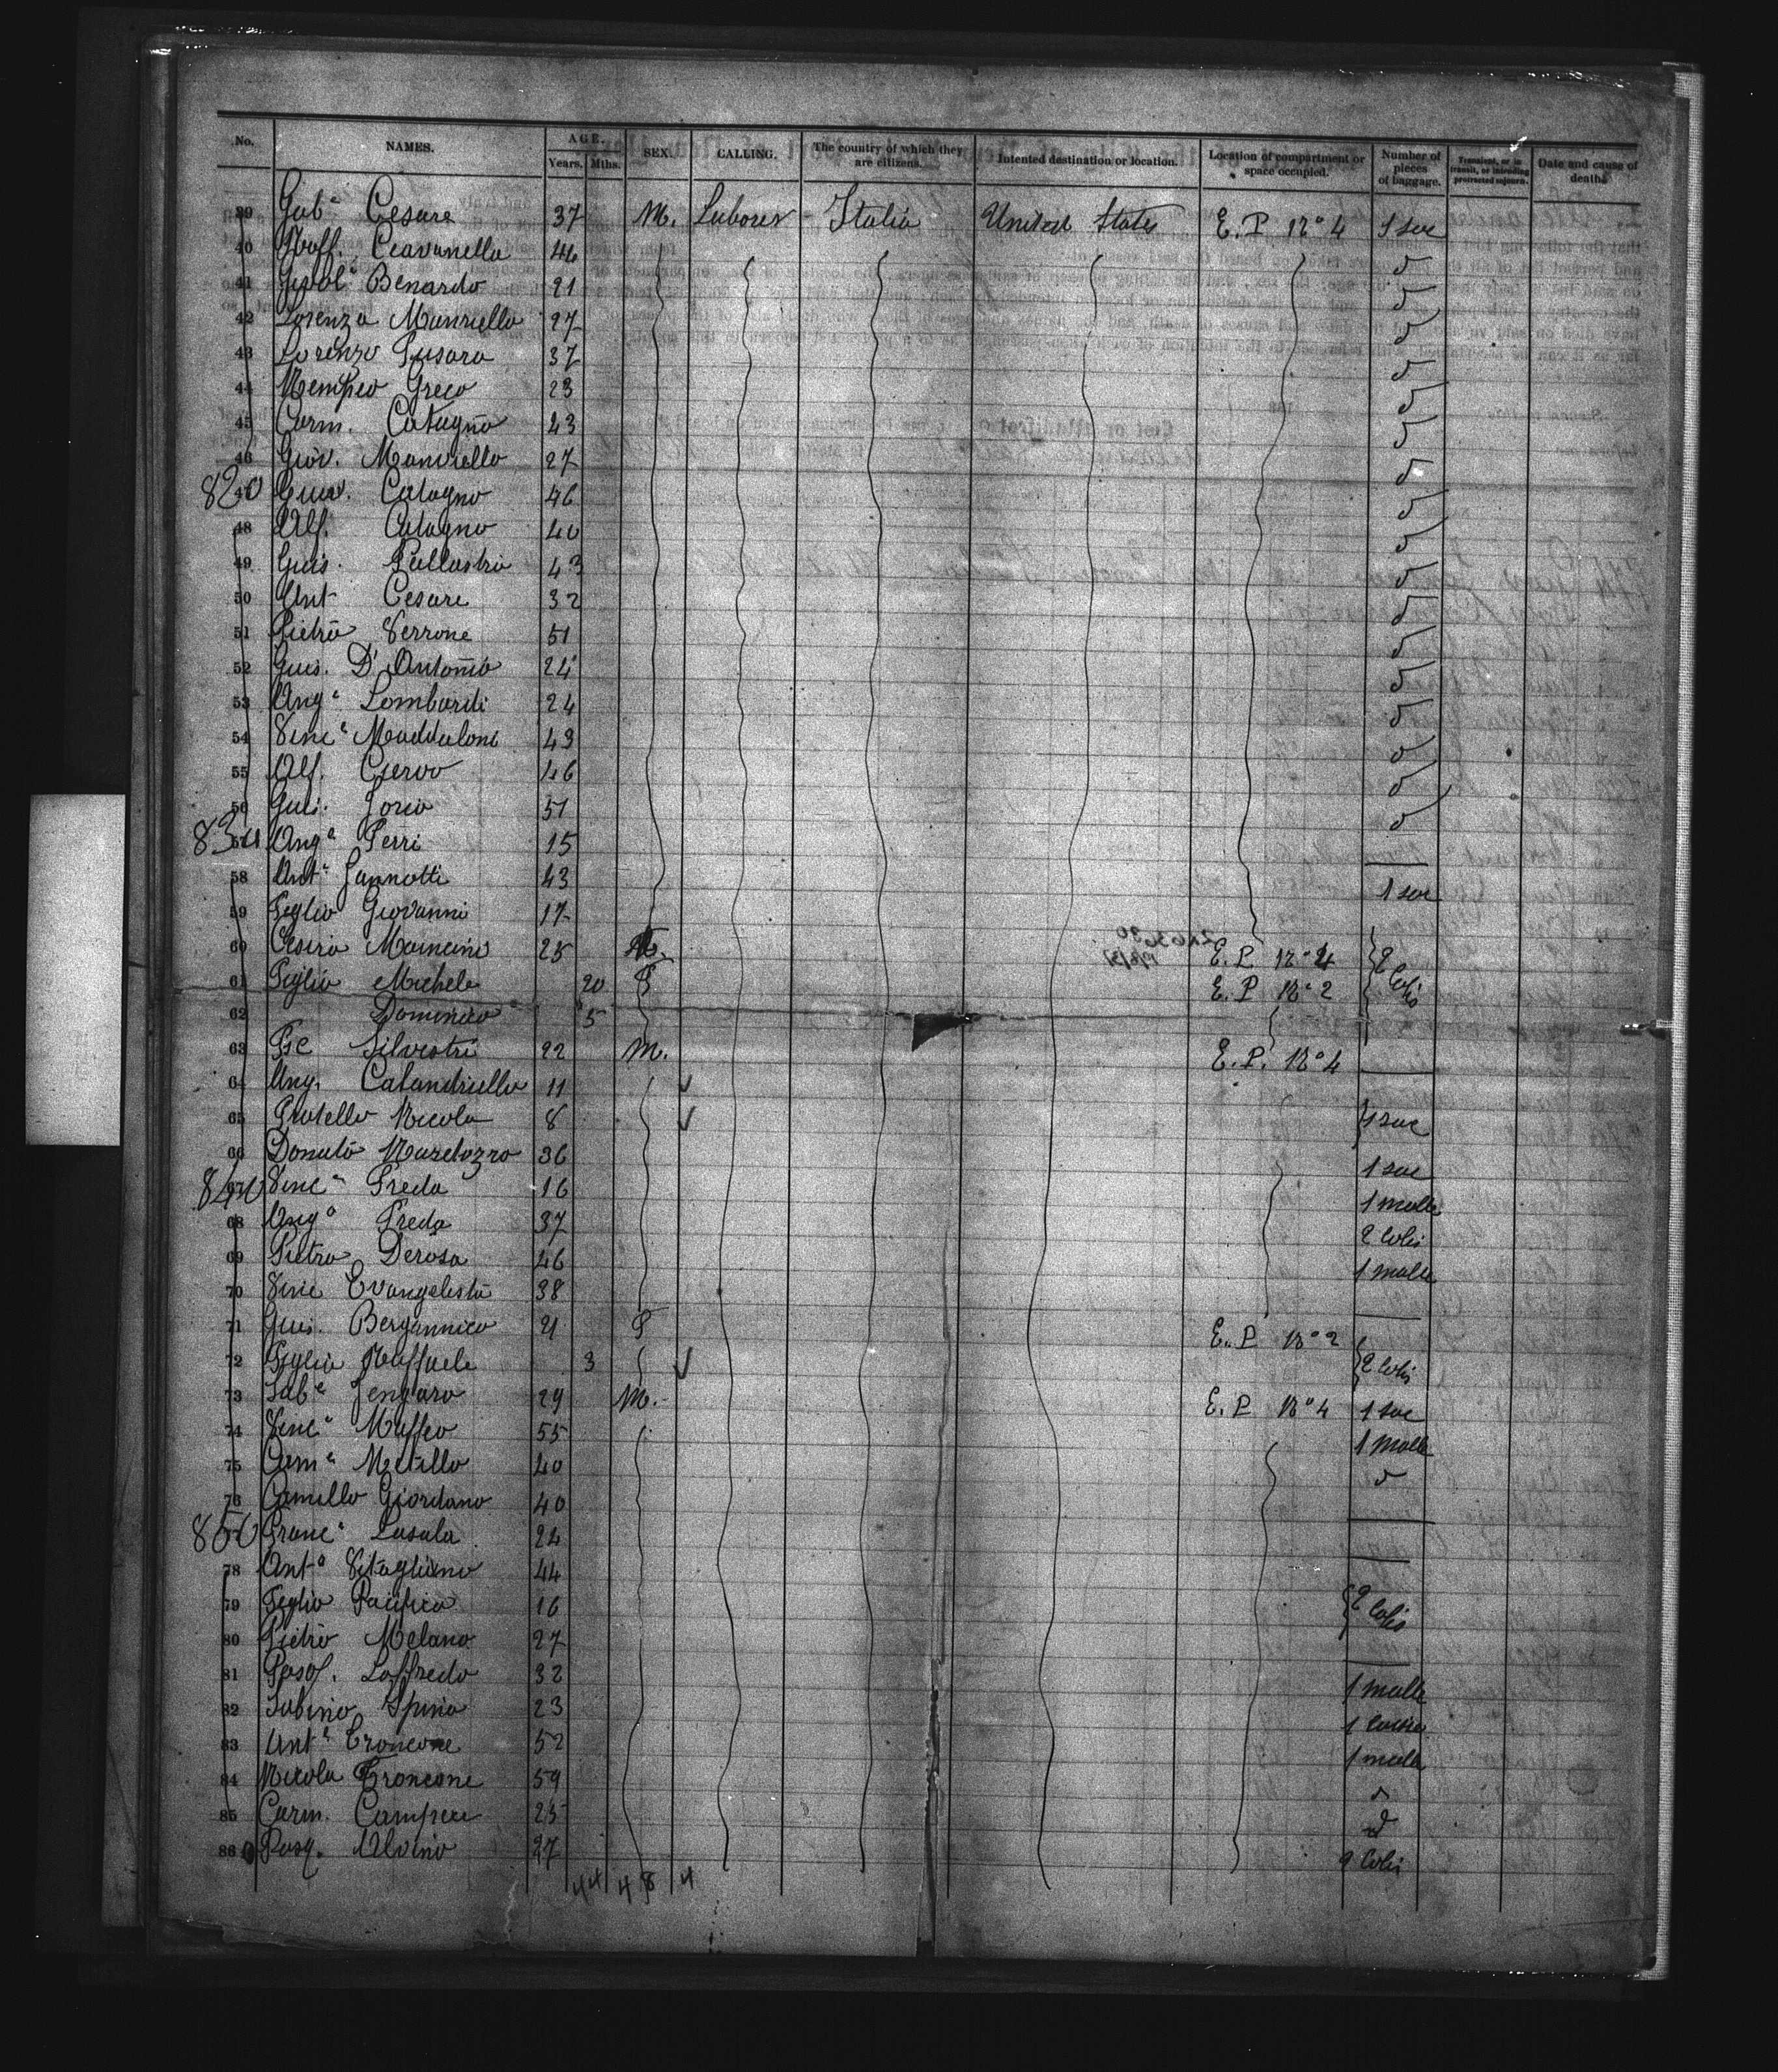 No. NAMES. AGE. Years. Mths. SEX. CALLING. The country of which they are citizens. Intented destination or location. Location of compartment or space occupied. Number of pieces of baggage. Transient, or in transit, or intending protracted sojourn. Date and cause of deaths
39 Gabe Cesare 37 M. Laborer Italia United States E. P No 4 1 sac
40 Raff. Ciavanella 46
41 Benardo 21
42 Lorenzo Manriello 27
43 Lorenzo Fusaro 37
44 Greco 23
45 Carm. Catagno 43
46 Giov. Manriello 27
820 Catagno 46
48 Alf. Catagno 40
49 Guis. Pallastro 43
50 Ant Cesare 32
51 Pietro Verrone 51
52 Guis. D'Antonio 24
53 Ango Lombardi 24
54 Vinco Maddaloni 43
55 Alf. Ciervo 46
56 Guis. Iorio 51
830 Ango Perri 15
58 Anto Iannotti 43 1 sac
59 Figlio Giovanni 17
60 Cesira Mancini 25 E. P No 2
61 Figlio Michele 20 F E. P No 2 2 Colis
62 Dominico 5
63 Silvestri 22 M. E. P. No 4
64 Ang. Calandriello 11
65 Fratello Nicola 8 1 sac
66 Donato Nardozzo 36 1 sac
840 Vinc Preda 16 1 malle
68 Ango Preda 37 2 Colis
69 Pietro Derosa 46 1 malle
70 Vinc Evangelista 38
71 Guis. Bergannico 21 F E. P No 2
72 Figlia Raffaele 3 2 Colis
73 Sabe Jengaro 29 M. E. P No 4 1 sac
74 Vinco Maffeo 55 1 Malle
75 Carme Metillo 40
76 Camillo Giordano 40
850 Franco Lasala 24
78 Anto Vitagliano 44
79 Figlio Pacifico 16 2 Colis
80 Pietro Melano 27
81 Pasq. Loffredo 32 1 malle
82 Sabino Spina 23 1 caisse
83 Anto Troncone 52 1 malle
84 Nicola Troncone 59
85 Carm. 25
86 Pasq. Alvino 27 2 Colis
44 48 4